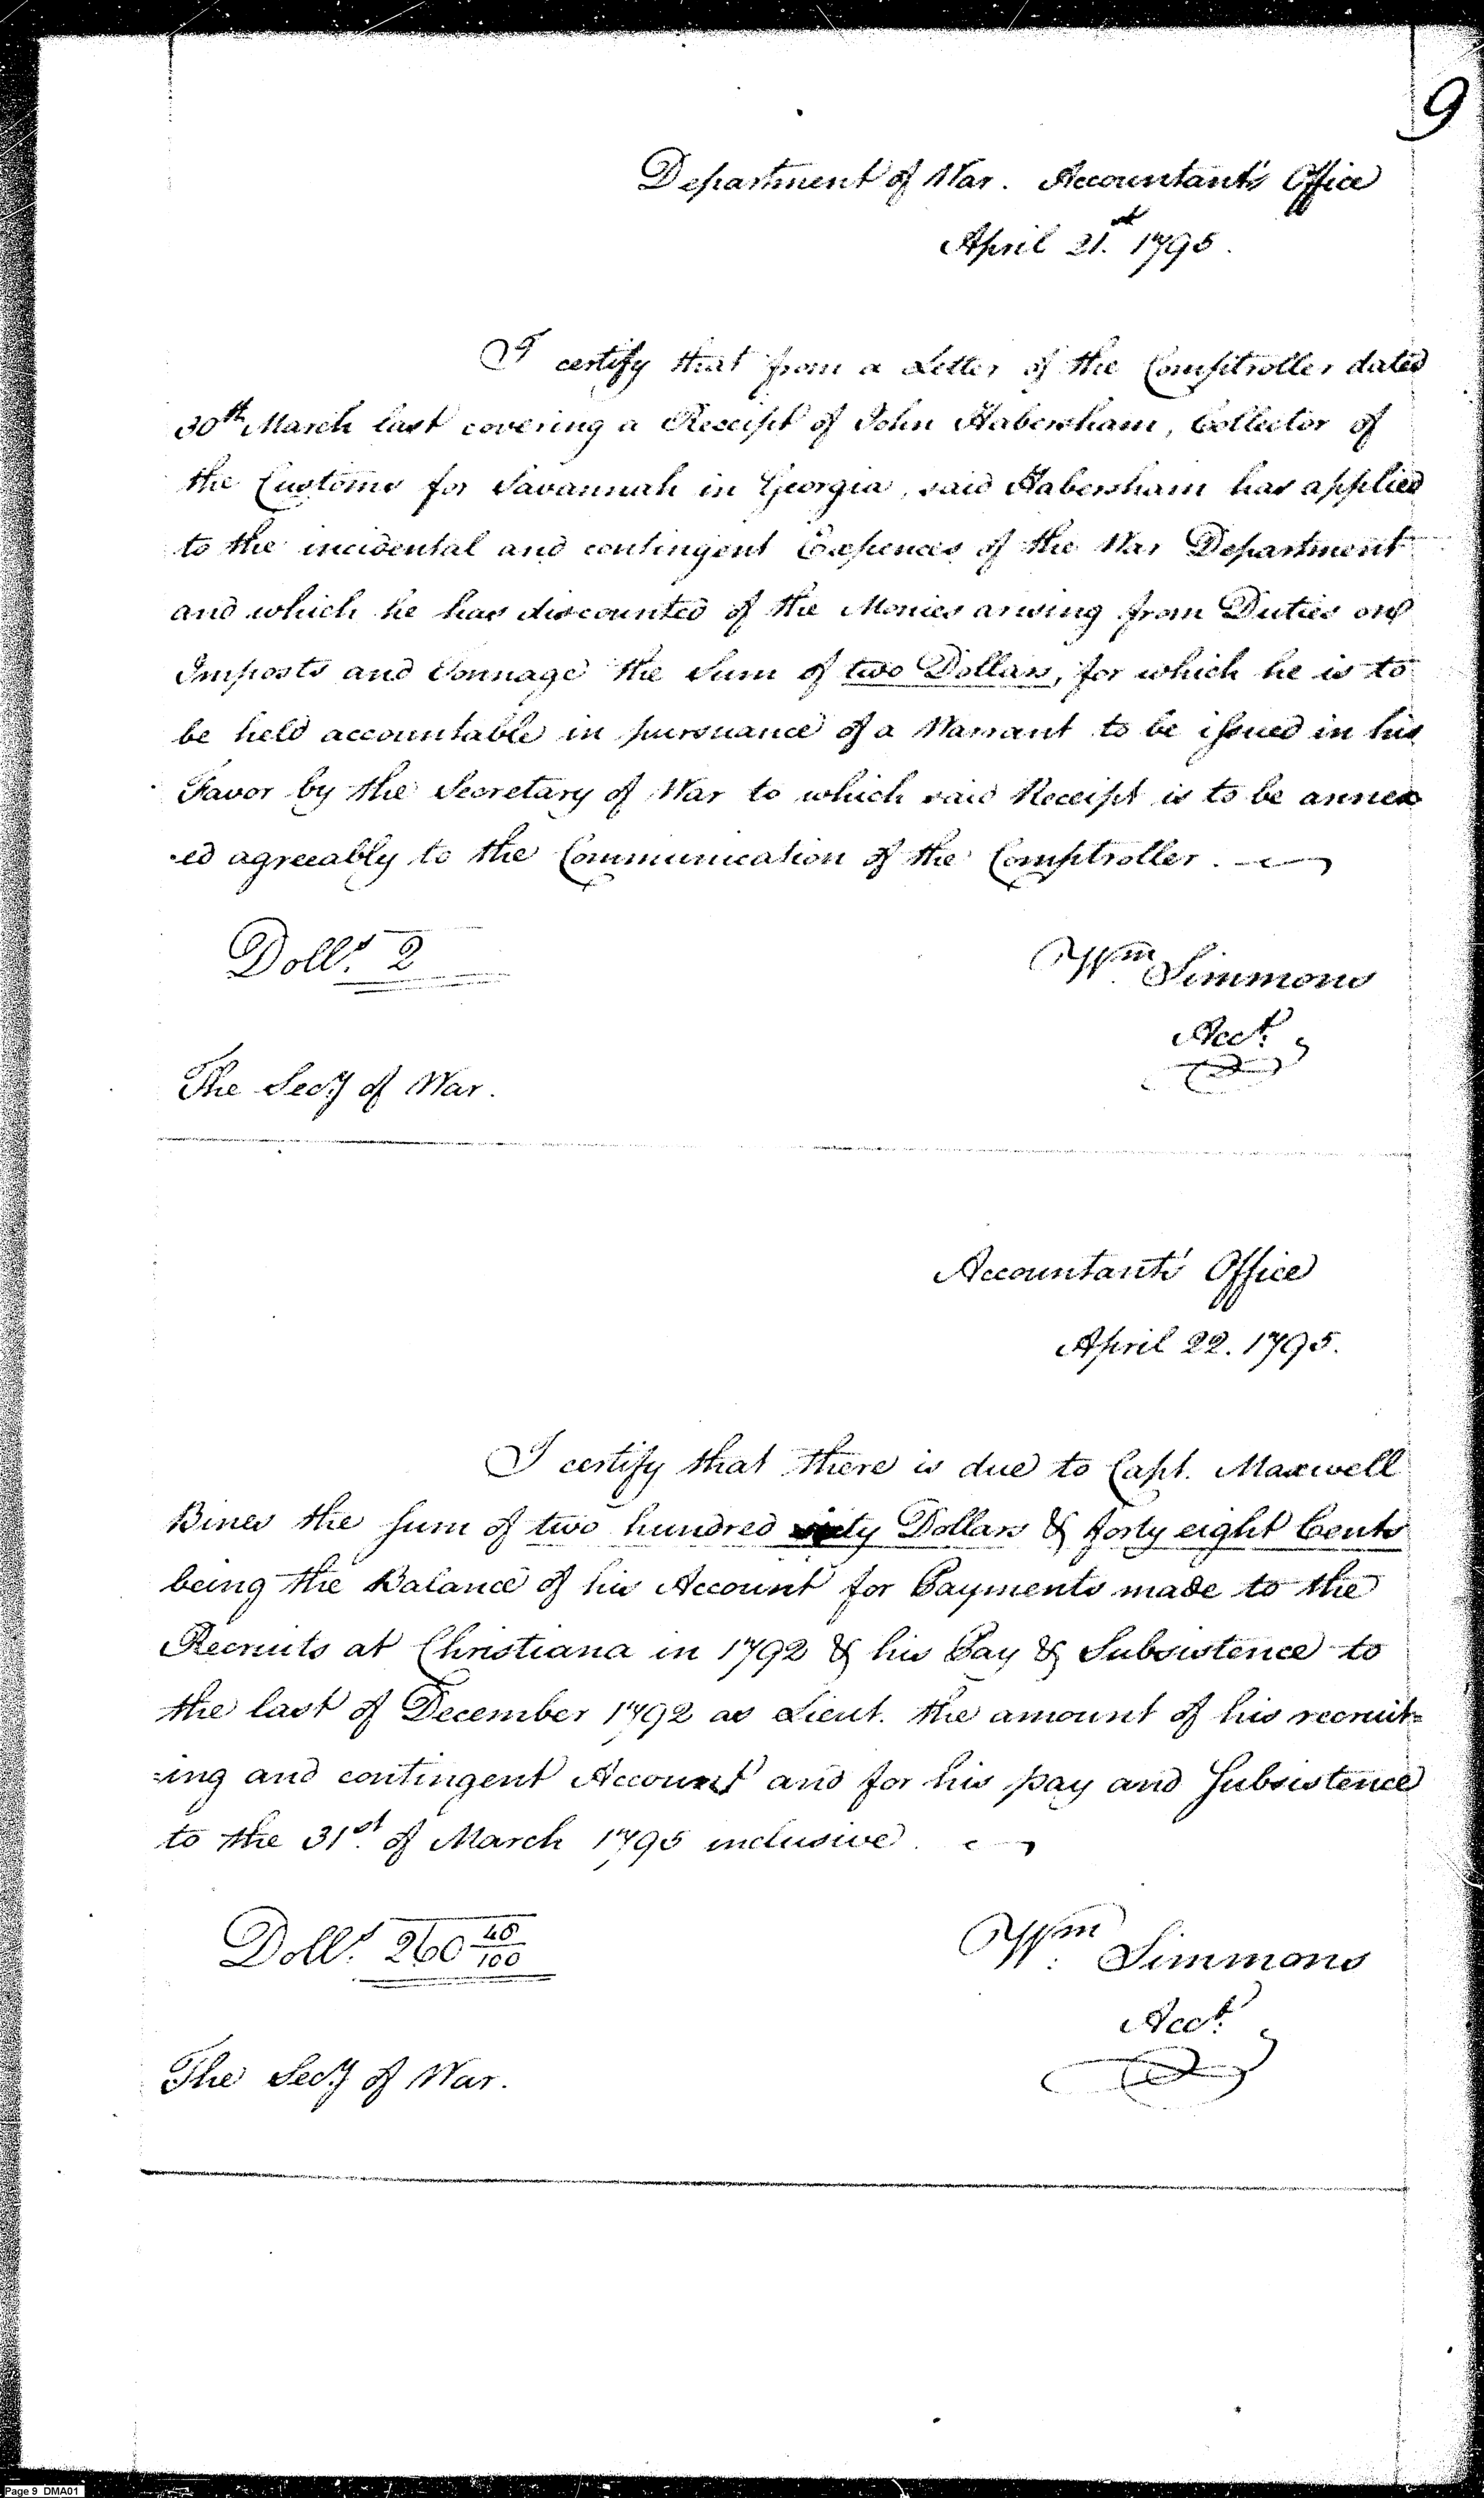 9
Department of War. Accountant's Office
April 21st. 1795.
I certify that from a Letter of the Comptroller dated
30th March last covering a Receipt of John Habersham, Collector of
the Customs for Savannah in Georgia, said Habersham has applied
to the incidental and contingent Expences of the War Department
and which he has discounted of the Monies arising from Duties on
Imposts and Tonnage the Sum of two Dollars, for which he is to
be held accountable in pursuance of a Warrant to be issued in his
Favor by the Secretary of War to which said Receipt is to be annex
-ed agreeably to the Communication of the Comptroller.
Dolls. 2
Wm. Simmons
Acct.
The Secy of War.
Accountant's Office
April 22. 1795.
I certify that there is due to Capt. Maxwell
Bines the Sum of two hundred sixty Dollars & forty eight Cents
being the Balance of his Account for Payments made to the
Recruits at Christiana in 1792 & his Pay & Subsistence to
the last of December 1792 as Lieut. the amount of his recruit=
=ing and contingent Account and for his pay and Subsistence
to the 31st. of March 1795 inclusive.
Dolls. 260 48/100
Wm. Simmons
Acct.
The Secy of War.
Page 9 DMA01